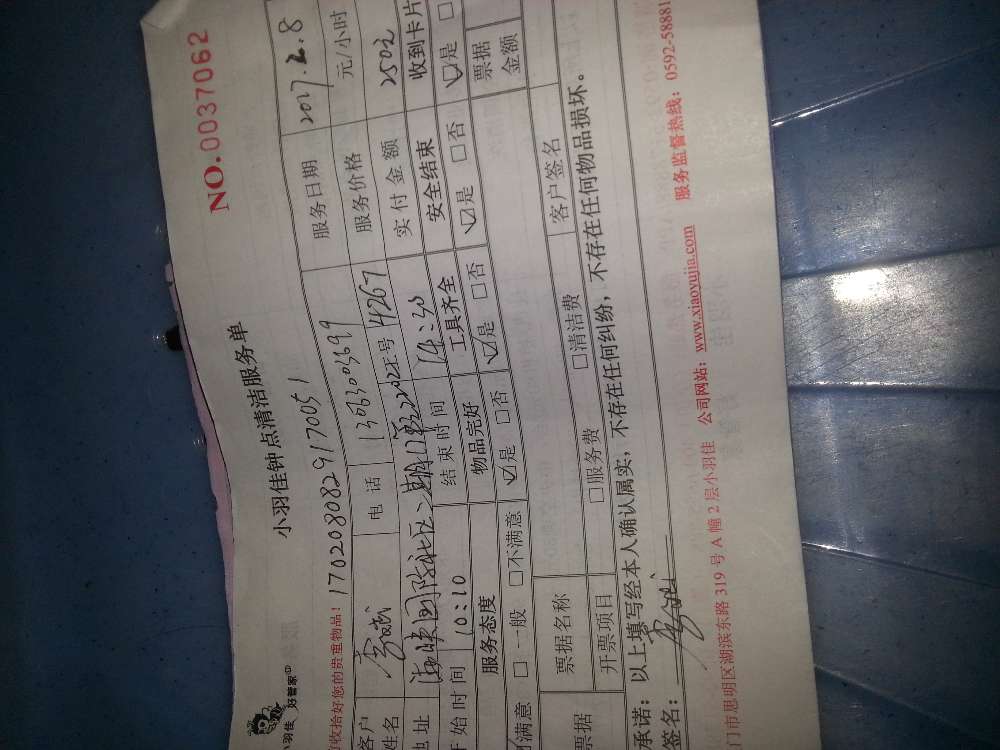 小羽佳 好管家
小羽佳钟点清洁服务单
NO.0037062
收拾好您的贵重物品！1702080829170051
服务日期 2017.2.8
客户姓名 电话 13063003699 服务价格 元/小时
地址 海峡国际社区 工号 4267 实付金额 250元
开始时间 10:10 结束时间 14:30 安全结束 收到卡片
服务态度 物品完好 工具齐全 ☑是 □否 ☑是 □
满意 □一般 □不满意 ☑是 □否 ☑是 □否
票据 票据名称 票据金额
开票项目 □服务费 □清洁费 客户签名
承诺：以上填写经本人确认属实，不存在任何纠纷，不存在任何物品损坏。
签名：
门市思明区湖滨东路 319 号 A 幢 2 层小羽佳 公司网站：www.xiaoyujia.com 服务监督热线：0592-58881